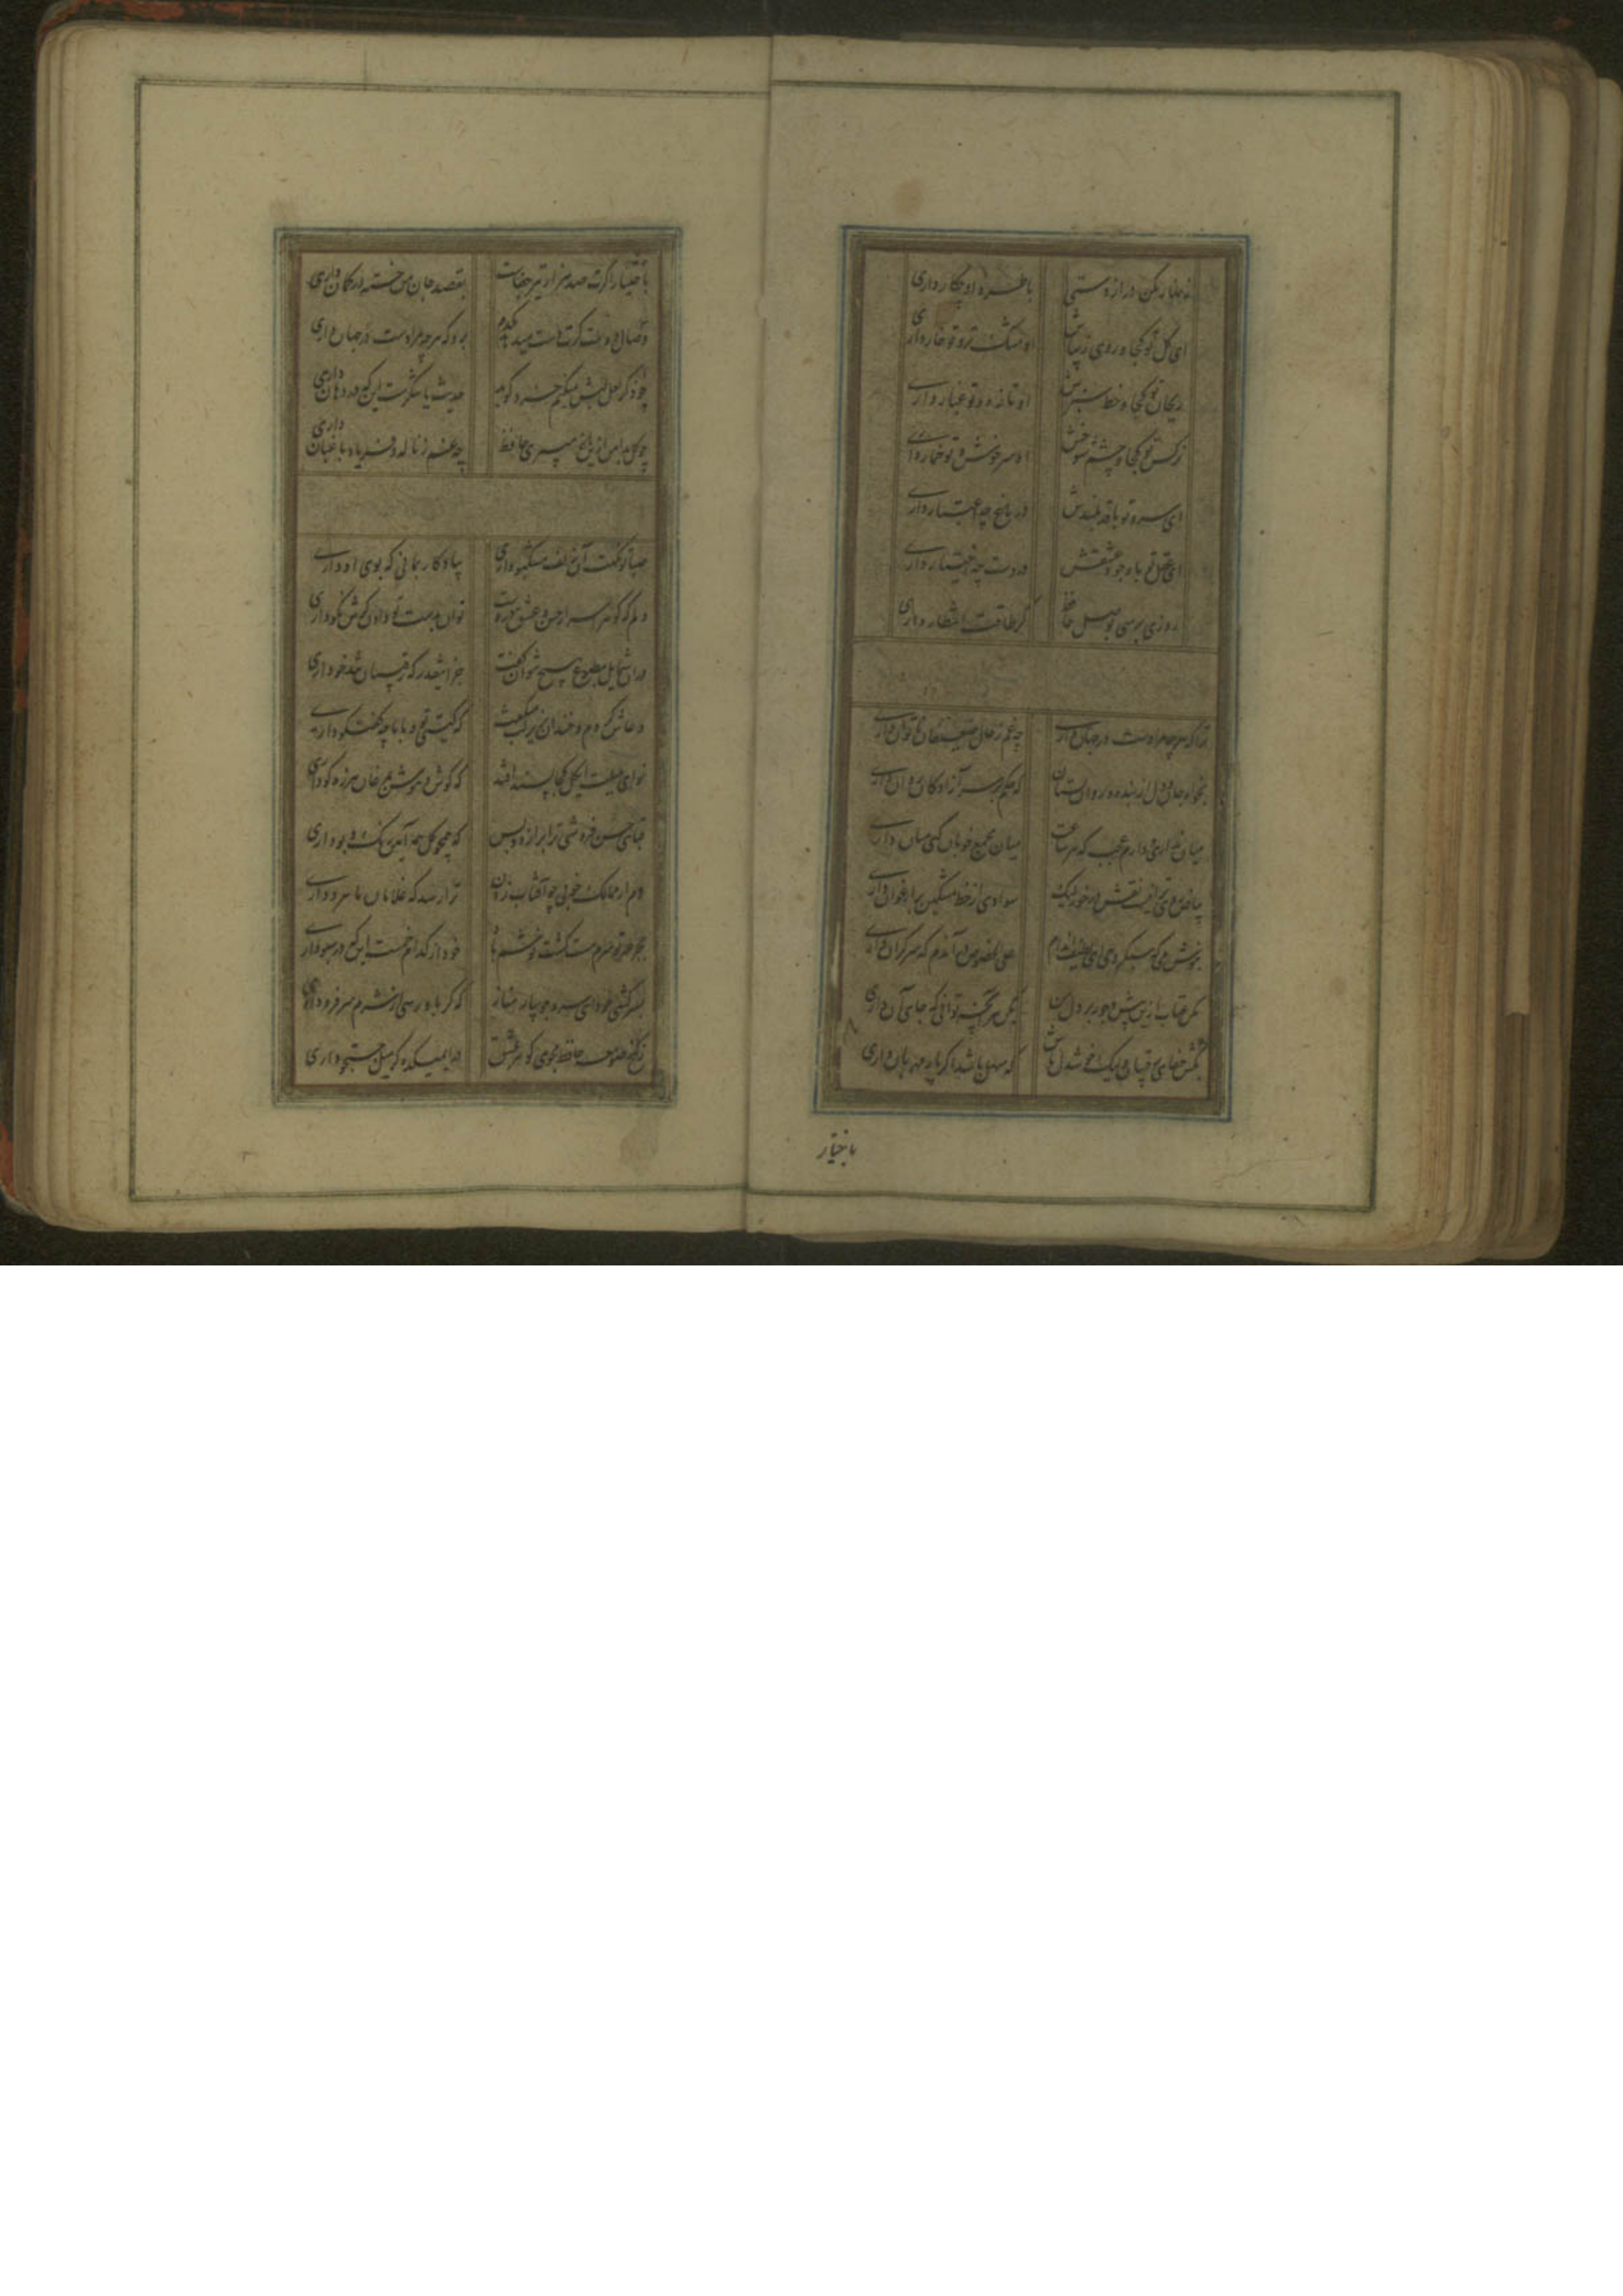 زنهار مکن دراز دستی با طره او چکار داری
ای گل تو کجا و روی زیباش او مشک تر و تو خار داری
ریحان تو کجا و خط سبزش او تازه و تو غبار داری
نرکس تو کجا و چشم شوخش او سرخوش و تو خمار داری
ای سرو تو با قد بلندش در باغ چه اعتبار داری
ای عقل تو با وجود عشقش در دست چه اختیار داری
روزی برسی بوصل حافظ گر طاقت انتظار داری
ترا که هر چه مرادست در جهان داری چه غم ز حال ضعیفان ناتوان داری
بخواه جان و دل از بنده و روان بستان که حکم بر سر آزادکان روان داری
میان نداری و دارم عجب که هر ساعت میان مجمع خوبان کنی میان داری
بیاض روی ترا نیست نقش در خور لیک سوادی از خط مشکین بر ارغوان داری
بنوش می که سبکروحی ای لطیف اندام علی الخصوص در آندم که سر گران داری
مکن عتاب ازین بیش و جور بر دل من بکن هر آنچه توانی که جای آن داری
بکش جفای رقیبان و لیک خوشدل باش که سهل باشد اگر یار مهربان داری
باختیار
باختیار اگرت صد هزار تیر جفاست بقصد جان من خسته در کمان داری
وصال دوست گرت دست میدهد یکدم برو که هر چه مرادست در جهان داری
چو ذکر لعل لبش میکنم خرد گوید حدیث یا شکرست این که در دهان داری
چو گل بدامن ازین باغ میبری حافظ چه غم ز ناله و فریاد باغبان داری
صبا تو نکهت آن زلف مشکبو داری بیادکار بمانی که بوی او داری
دلم که گوهر اسرار حسن و عشق دروست توان بدست تو دادن گرش نکو داری
در آن شمایل مطبوع هیچ نتوان گفت جز اینقدر که رقیبان تندخو داری
دعاش کردم و خندان بزیر لب گفت که کیستی تو و با ما چه گفت و گو داری
نوای بلبلت ای گل کجا پسند افتد که گوش هوش بمرغان هرزه گو داری
قبای حسن فروشی ترا برازد و بس که همچو گل همه آیین رنگ و بو داری
دم از ممالک خوبی چو آفتاب زدن ترا رسد که غلامان ماه رو داری
بجرعه تو سرم مست گشت نوشت باد خود از کدام خمست این که در سبو داری
بسرکشی خود ای سرو جویبار مناز که گر باو رسی از شرم سر فرو داری
ز کنج صومعه حافظ مجوی گوهر عشق قدم بمیکده گر میل جستجو داری